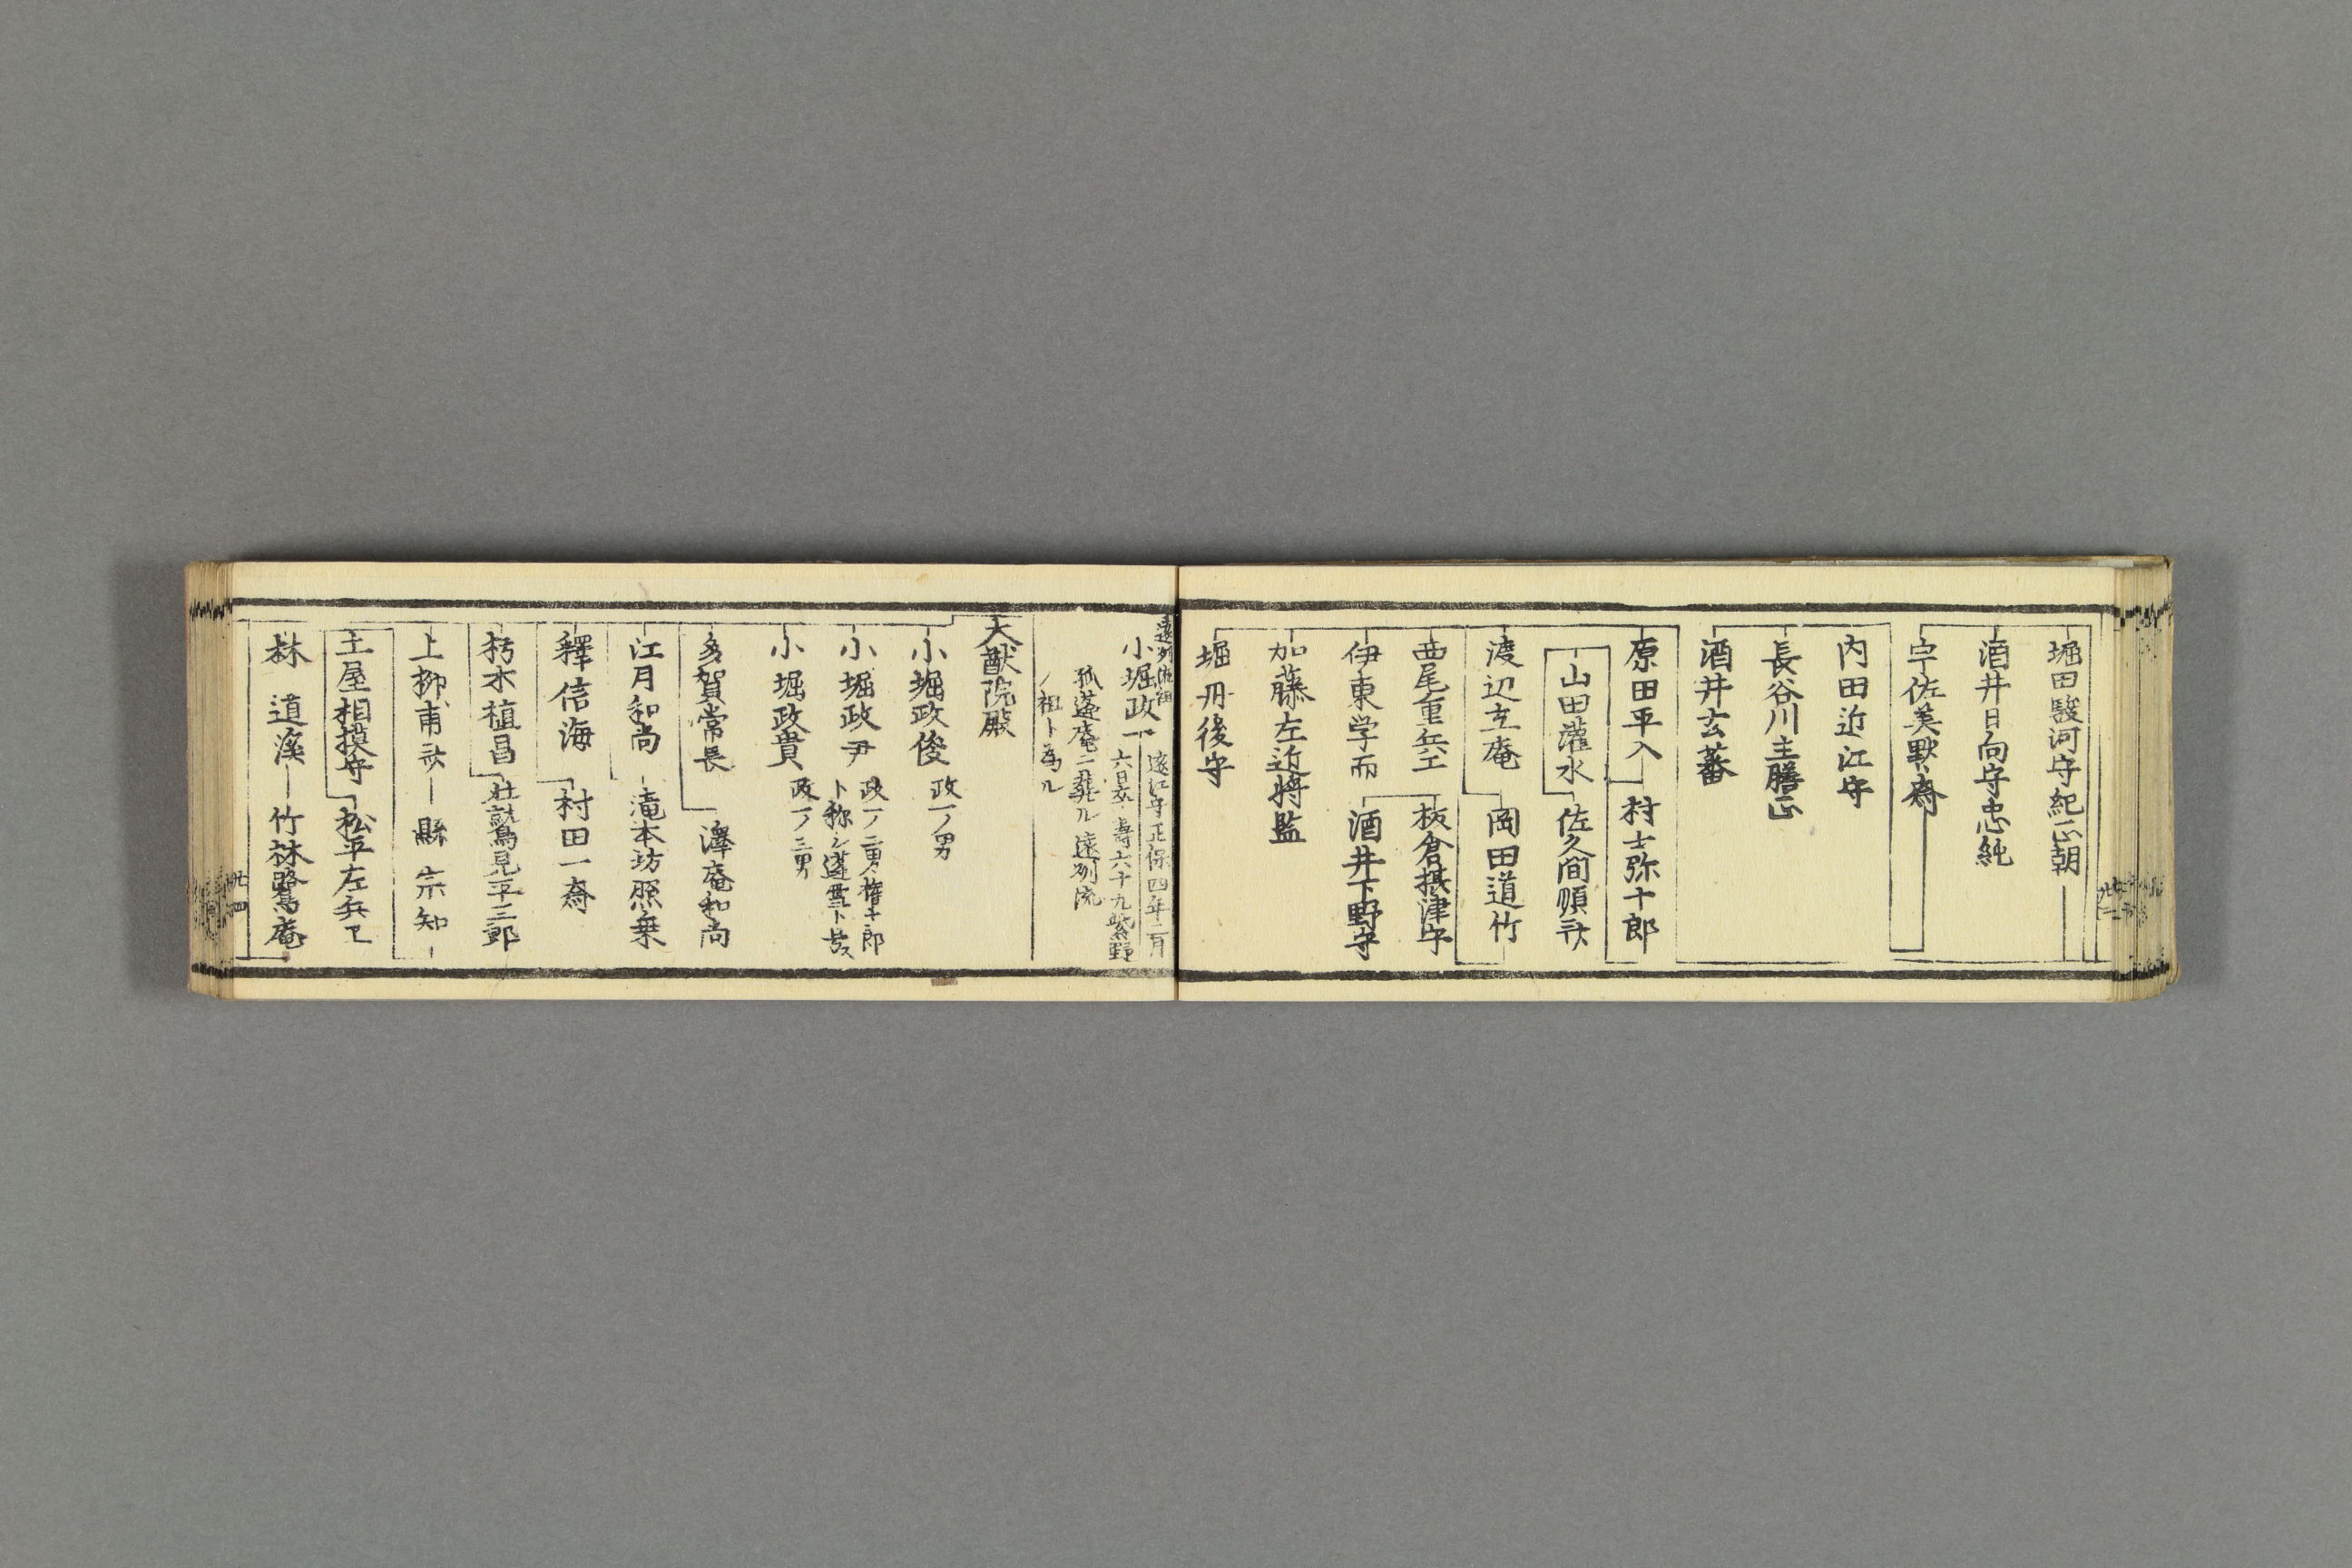 堀田駿河守紀正朝
酒井日向守忠純
宇佐美黙斎
内田近江守
長谷川主膳正
酒井玄蕃
原田平入
村士弥十郎
山田灌水
佐久間順
渡辺立庵
岡田道竹
西尾重兵エ
板倉摂津守
伊東学而
酒井下野守
加藤左近将監
堀丹後守
遠州流祖
小堀政一
遠江守正保四年二月
六日卒寿六十九紫野
孤蓬庵ニ葬ル遠州流
ノ祖ト為ル
大猷院殿
小堀政俊
政一ノ男
小堀政尹
政一ノ二男権十郎
ト称シ蓬雪ト号ス
小堀政貴
政一ノ三男
多賀常長
澤庵和尚
江月和尚
滝本坊照乗
釋信海
村田一斎
朽木植昌
鷲見平三郎
上柳甫
縣宗知
土屋相摸守
松平左兵ヱ
林道渓
竹林鷺庵
廿四